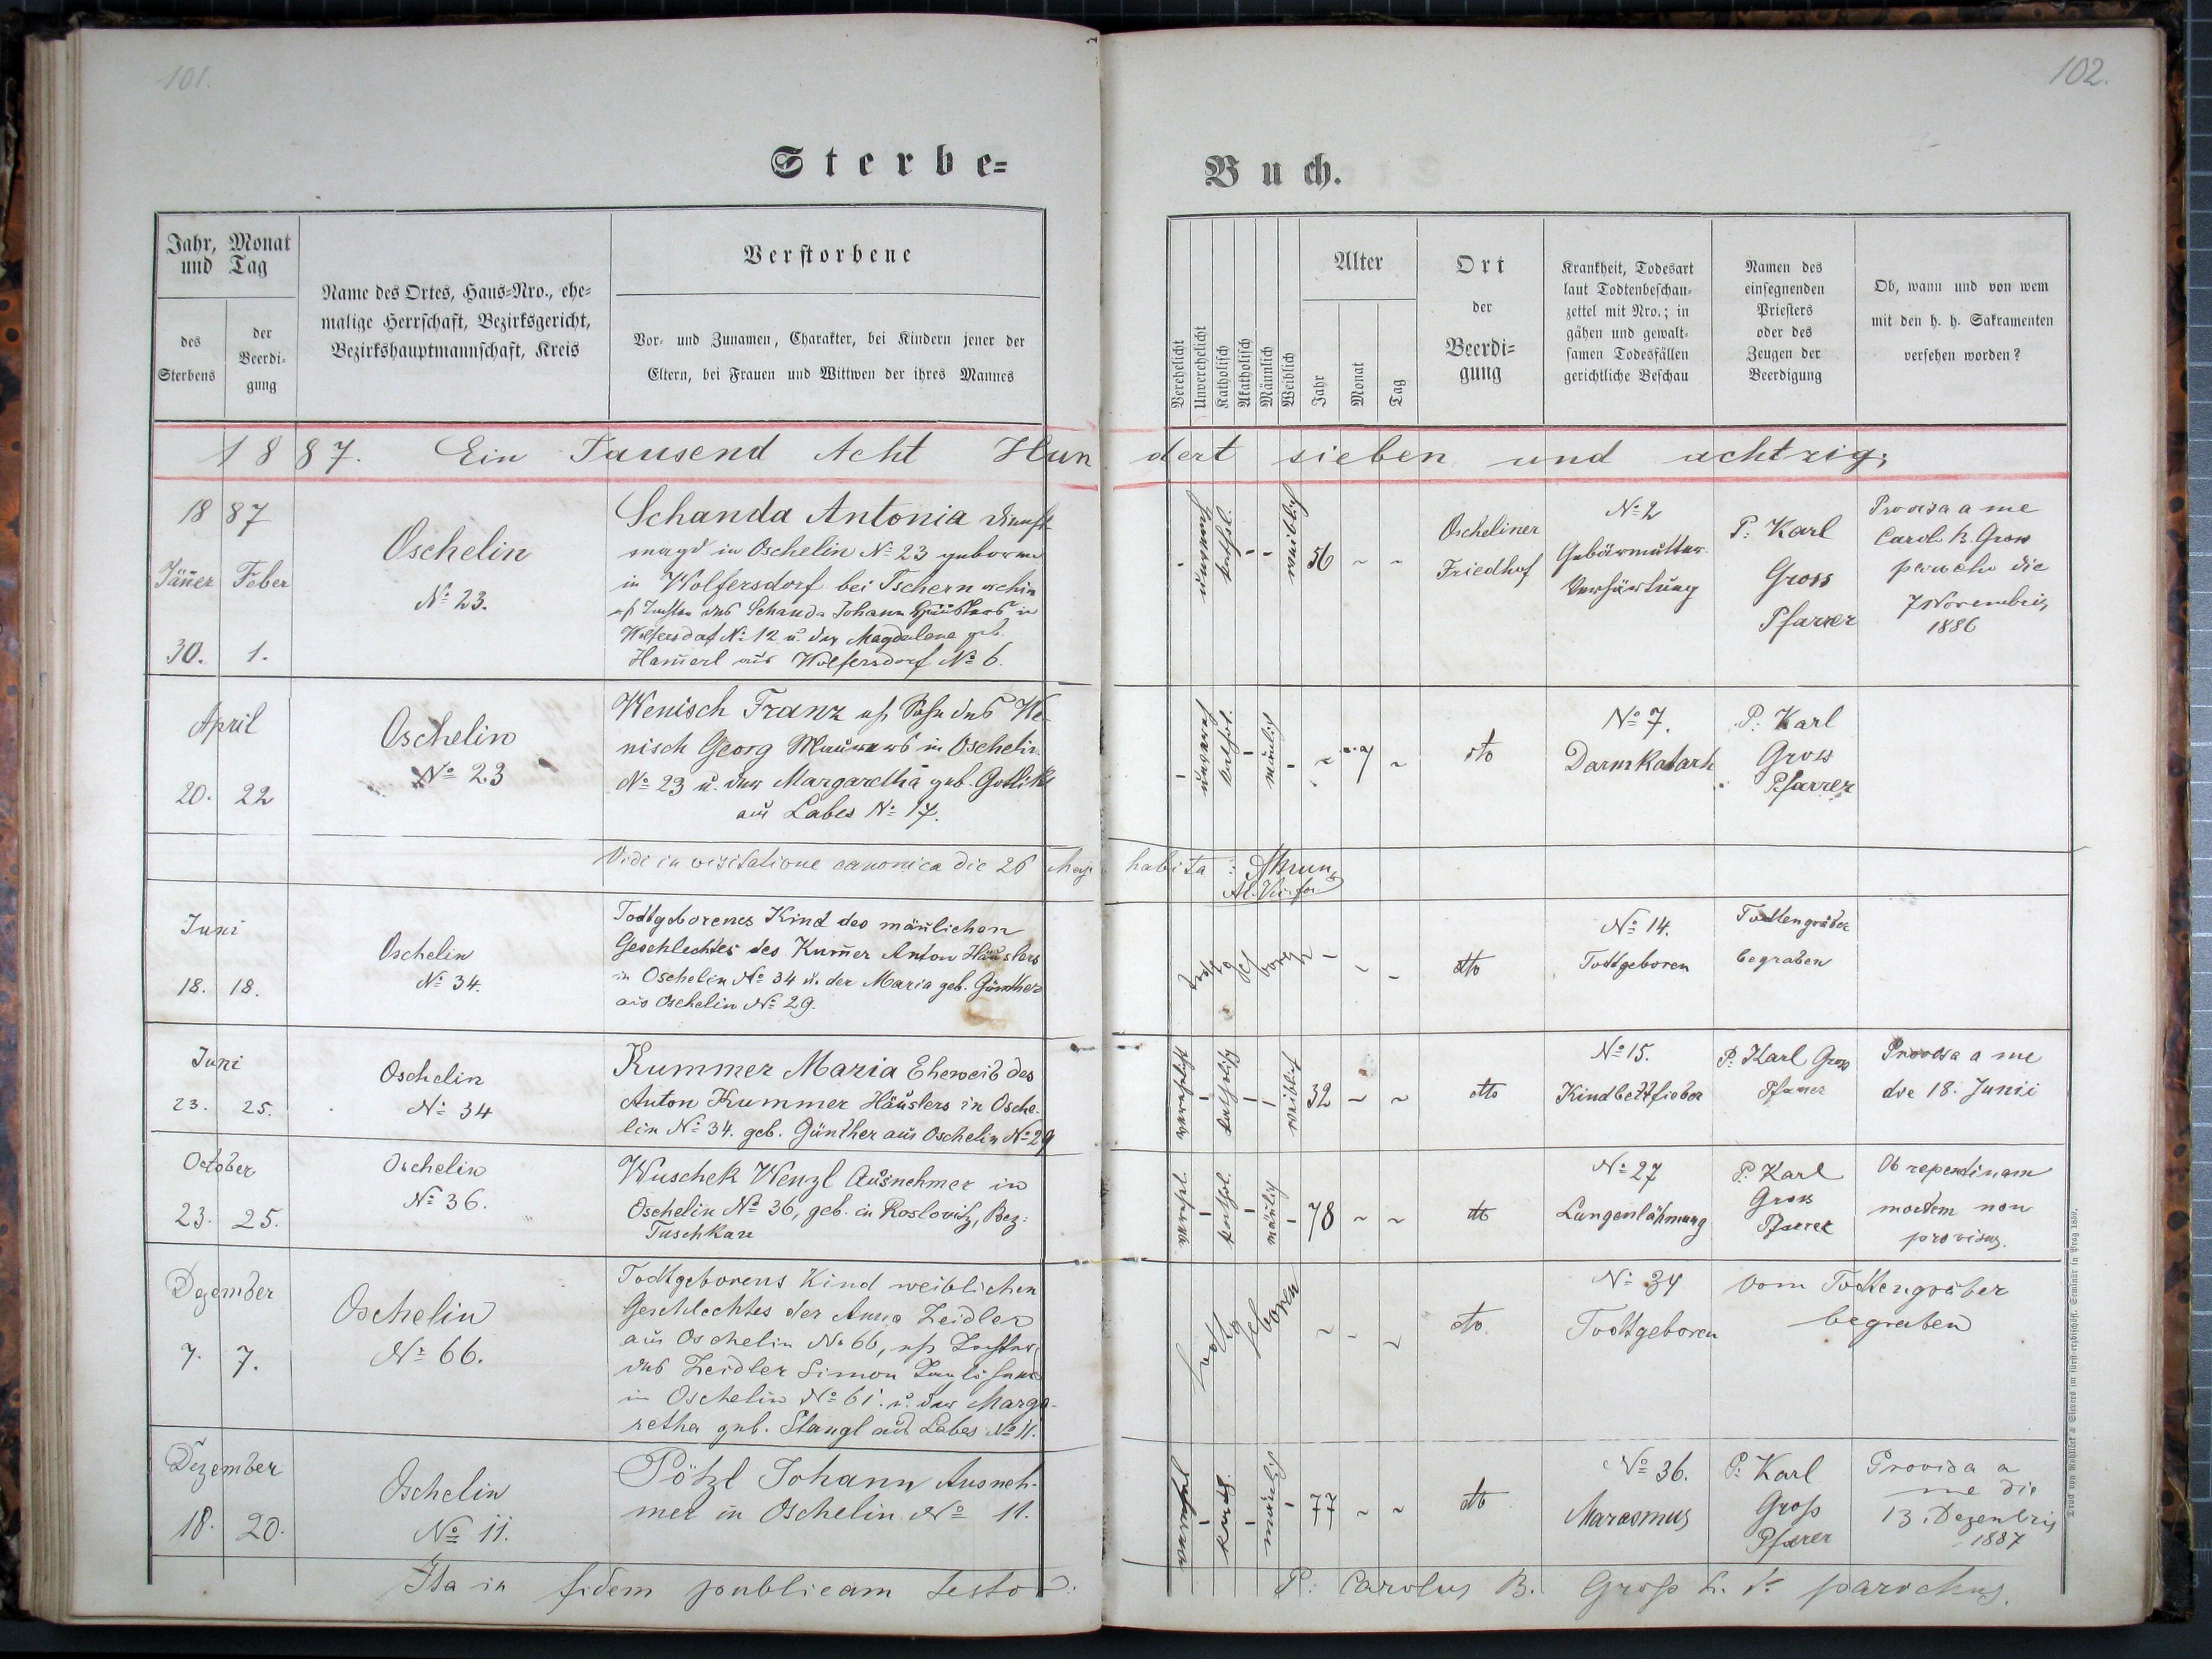 101.
102.
Sterbe=
Buch.
Jahr, Monat
und Tag
des
Sterbens
der
Beerdi-
gung
Name des Ortes, Haus=Nro., ehe=
malige Herrschaft, Bezirksgericht,
Bezirkshauptmannschaft, Kreis
Verstorbene
Vor- und Zunamen, Charakter, bei Kindern jener der
Eltern, bei Frauen und Wittwen der ihres Mannes
Verehelicht
Unverehelicht
Katholisch
Akatholisch
Männlich
Weiblich
Alter
Jahr
Monat
Tag
Ort
der
Beerdi=
gung
Krankheit, Todesart
laut Todtenbeschau-
zettel mit Nro.; in
gähen und gewalt-
samen Todesfällen
gerichtliche Beschau
Namen des
einsegnenden
Priesters
oder des
Zeugen der
Beerdigung
Ob, wann und von wem
mit den h. h. Sakramenten
versehen worden?
1887. Ein Tausend Acht Hun dert sieben und achtzig;
1887
Jäner Feber
30. 1.
Oschelin
No 23.
Schanda Antonia Dienst-
magd in Oschelin No 23 geboren
in Wolfersdorf bei Tschernoschin
eh Tochter des Schanda Johann Häuslers in
Wolfersdof No 12 u. der Magdalena geb.
Hamerl aus Wolfersdorf No 6.
kathol.
weiblich
56 - -
Oscheliner
Friedhof
No 2
Gebärmutter
Verhärtung
P. Karl
Gross
Pfarrer
Provisa a me
Carolo B. Gross
parocho die
7 Novembris
1886
April
20. 22
Oschelin
No 23
Wenisch Franz eh Sohn des We-
nisch Georg Maurers in Oschelin
No 23 u. der Margaretha geb. Gottlik
aus Labes No 17.
unvereh
kathol.
mänlich
dto
No 7.
Darmkatarh
P. Karl
Gross
Pfarrer
Vidi in visitatione canonica die 26 Maji habita:
Juni
18. 18.
Oschelin
No 34.
Todtgeborenes Kind des mänlichen
Geschlechtes des Kumer Anton Häuslers
in Oschelin No 34 u. der Maria geb. Günther
aus Oschelin No 29.
Todtgeboren
dto
No 14.
Todtgeboren
Todtengräber
begraben
Juni
23. 25.
Oschelin
No 34
Kummer Maria Eheweib des
Anton Kummer Häuslers in Osche-
lin No 34. geb. Günther aus Oschelin No 29
verehelicht
katholisch
weiblich
32 - -
dto
No 15.
Kindbettfieber
P. Karl Gross
Pfarrer
Provisa a me
die 18. Junii
October
23. 25.
Oschelin
No 36.
Wuschek Wenzl Ausnehmer in
Oschelin No 36, geb. in Roslovitz, Bez:
Tuschkau
verehl.
kathol.
mänlich
78 - -
dto
No 27
Lungenlähmung
P. Karl
Gross
Pfarrer
Ob repentinam
mortem non
provisus.
Dezember
7. 7.
Oschelin
No 66.
Todtgeborens Kind weiblichen
Geschlechtes der Anna Zeidler
aus Oschelin No 66, eh Tochter
des Zeidler Simon Taglöhners
in Oschelin No 61. u. der Marga-
retha geb. Stangl aus Labes No 11.
Todtgeboren
dto.
No 34
Todtgeboren
vom Todtengräber
begraben
Dezember
18. 20.
Oschelin
No 11.
Pötzl Johann Ausneh-
mer in Oschelin No 11.
kath.
mänlich
77 - -
dto
No 36.
Marasmus
P. Karl
Gross
Pfarer
Provisa a
me die
13. Dezembris
1887
Ita in fidem publicam testor: P. Carolus B. Gross parochus.
Druck von Rohliček & Sievers im fürst-erzbischöfl. Seminar in Prag 1859.